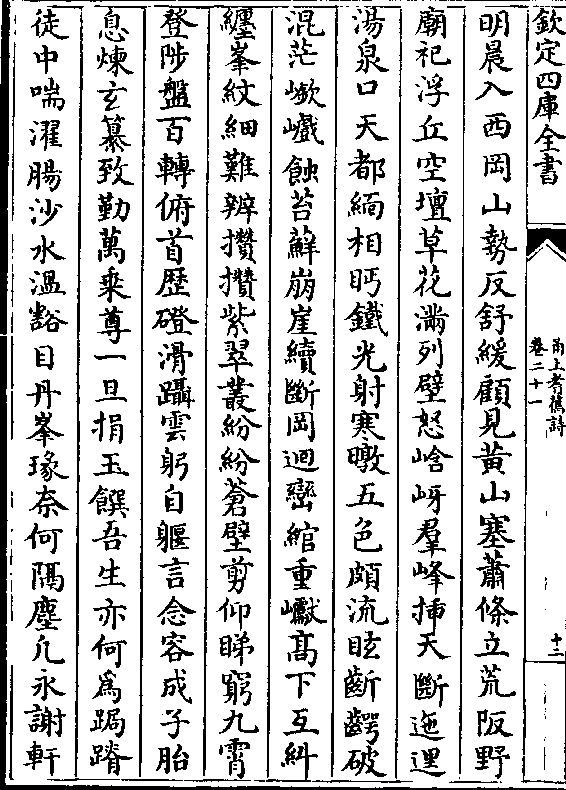 欽定四庫全書
甬上耆舊詩
卷二十一
十二
明晨入西岡山勢反舒緩顧見黃山塞蕭條立荒阪野
廟祀浮丘空壇草花滿列壁怒崯岈羣峰挿天斷迤逕
湯泉口天都緬相眄鐵光射寒暾五色頗流眩齗齶破
混茫嶔巇蝕苔蘚崩崖續斷岡迴巒綰重巘髙下互糾
纒峯紋細難辨攢攢紫翠叢紛紛蒼壁剪仰睇窮九霄
登陟盤百轉俯首歴磴滑躡雲躬自軀言念容成子胎
息煉玄纂致勤萬乗尊一旦捐玉饌吾生亦何爲跼蹐
徒中喘濯腸沙水温豁目丹峯瑑奈何隔塵凢永謝軒